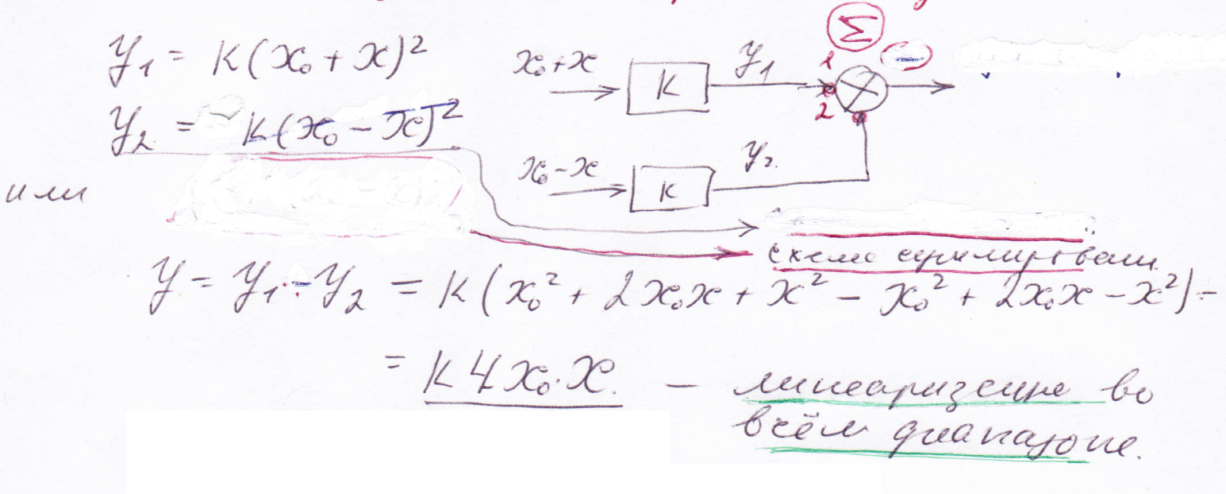 y₁ = K(x₀ + x)²
y₂ = K(x₀ − x)²
или
x₀+x K y₁ 1 2 Σ −
x₀−x K y₂
схема суммирования
y = y₁ − y₂ = K(x₀² + 2x₀x + x² − x₀² + 2x₀x − x²) =
= K4x₀·x. — линеаризация во
всём диапазоне.